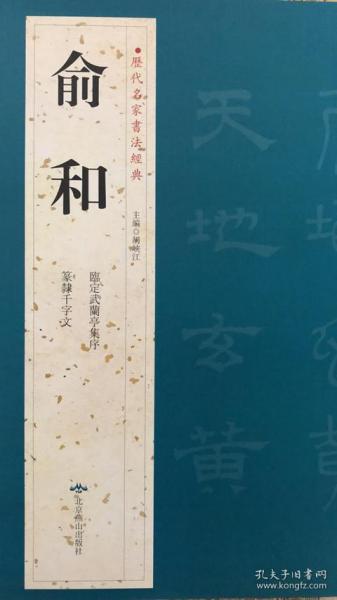 歷代名家書法經典
俞和
主編◎胡峽江
臨定武蘭亭集序
篆隸千字文
北京燕山出版社
天地玄黃
孔夫子旧书网